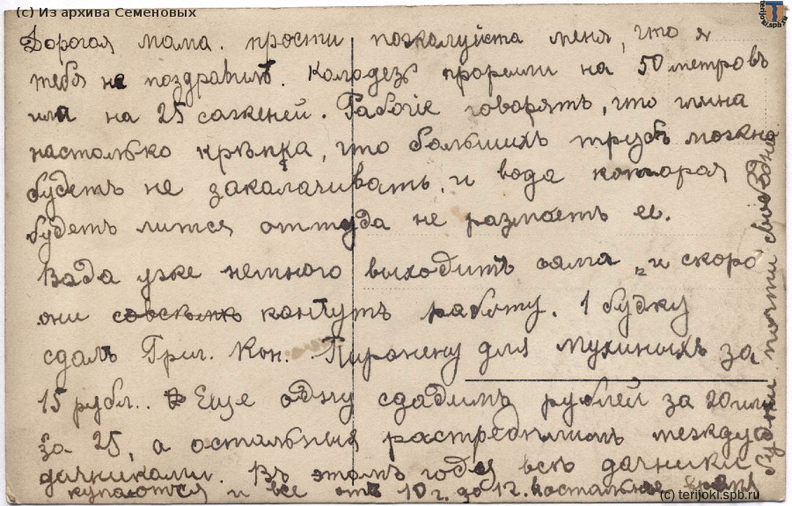 (c) Из архива Семеновых
terijoki.spb.ru
Дорогая мама. прости пожалуйста меня, что я
тебя не поздравилъ. Колодезь прорыли на 50 метровъ
или на 25 саженей. Рабочіе говорятъ, что глина
настолько крѣпка, что большихъ трубъ можно
будетъ не заколачивать, и вода которая
будетъ литься оттуда не размоетъ ее.
Вода уже немного выходитъ сама и скоро
они кончутъ работу. 1 будку
сдалъ Григ. Кон. Пиронену для Мухиныхъ за
15 рубл.. Еще одну сдадимъ рублей за 20 или
за 25, а остальныя распредѣлимъ между
дачниками. Въ этомъ году всѣ дачники
купаются и все отъ 10 г. до 12. Въ остальное время
будки почти свободны
(c) terijoki.spb.ru